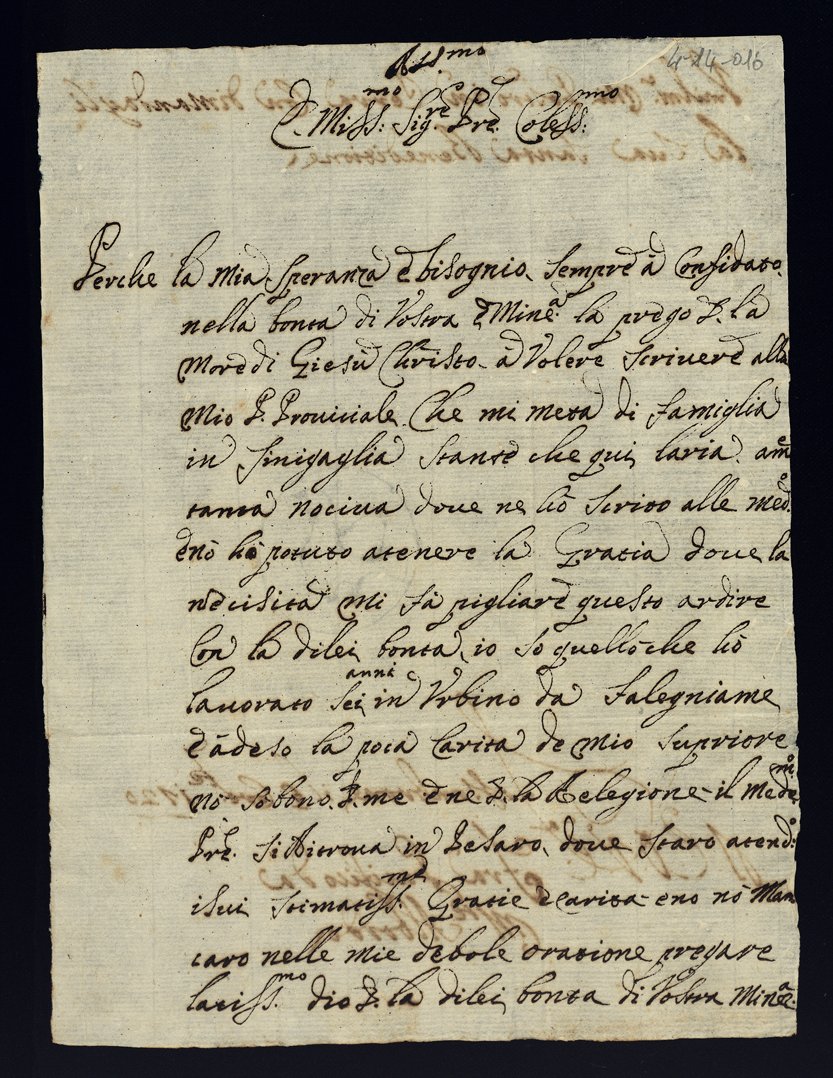 4-14-016
E. Miss:mo Sig.re Pre. Coless:mo
Perche la mia speranza è bisognio, sempre à Confidato
nella bonta di Vostra E Mine:a la prego P. la
more di Giesù Christo à Volere scrivere alla
Mio P. Proviciale Che mi meta di famiglia
in Sinigaglia stante che qui laria am.e
tanta nociva dove ne hò scrito alle med.o
è nò hò potuto atenere la Gratia dove la
necisità mi fa pigliare questo ardire
Con la dilei bonta, io so quello che hò
lavorato sei anni in Vrbino da falegniame
è adeso la poca Carita de mio supriore
nò so bono P. me è ne P. la Relegione il mede.mi
Pre. si Ritrova in Pesaro, dove staro atend.o
i sui stimatiss:me Gratie è Carita e no nò Man
caro nelle mie debole oratione pregare
latiss:mo dio P. la dilei bonta di Vostra Mine.a: